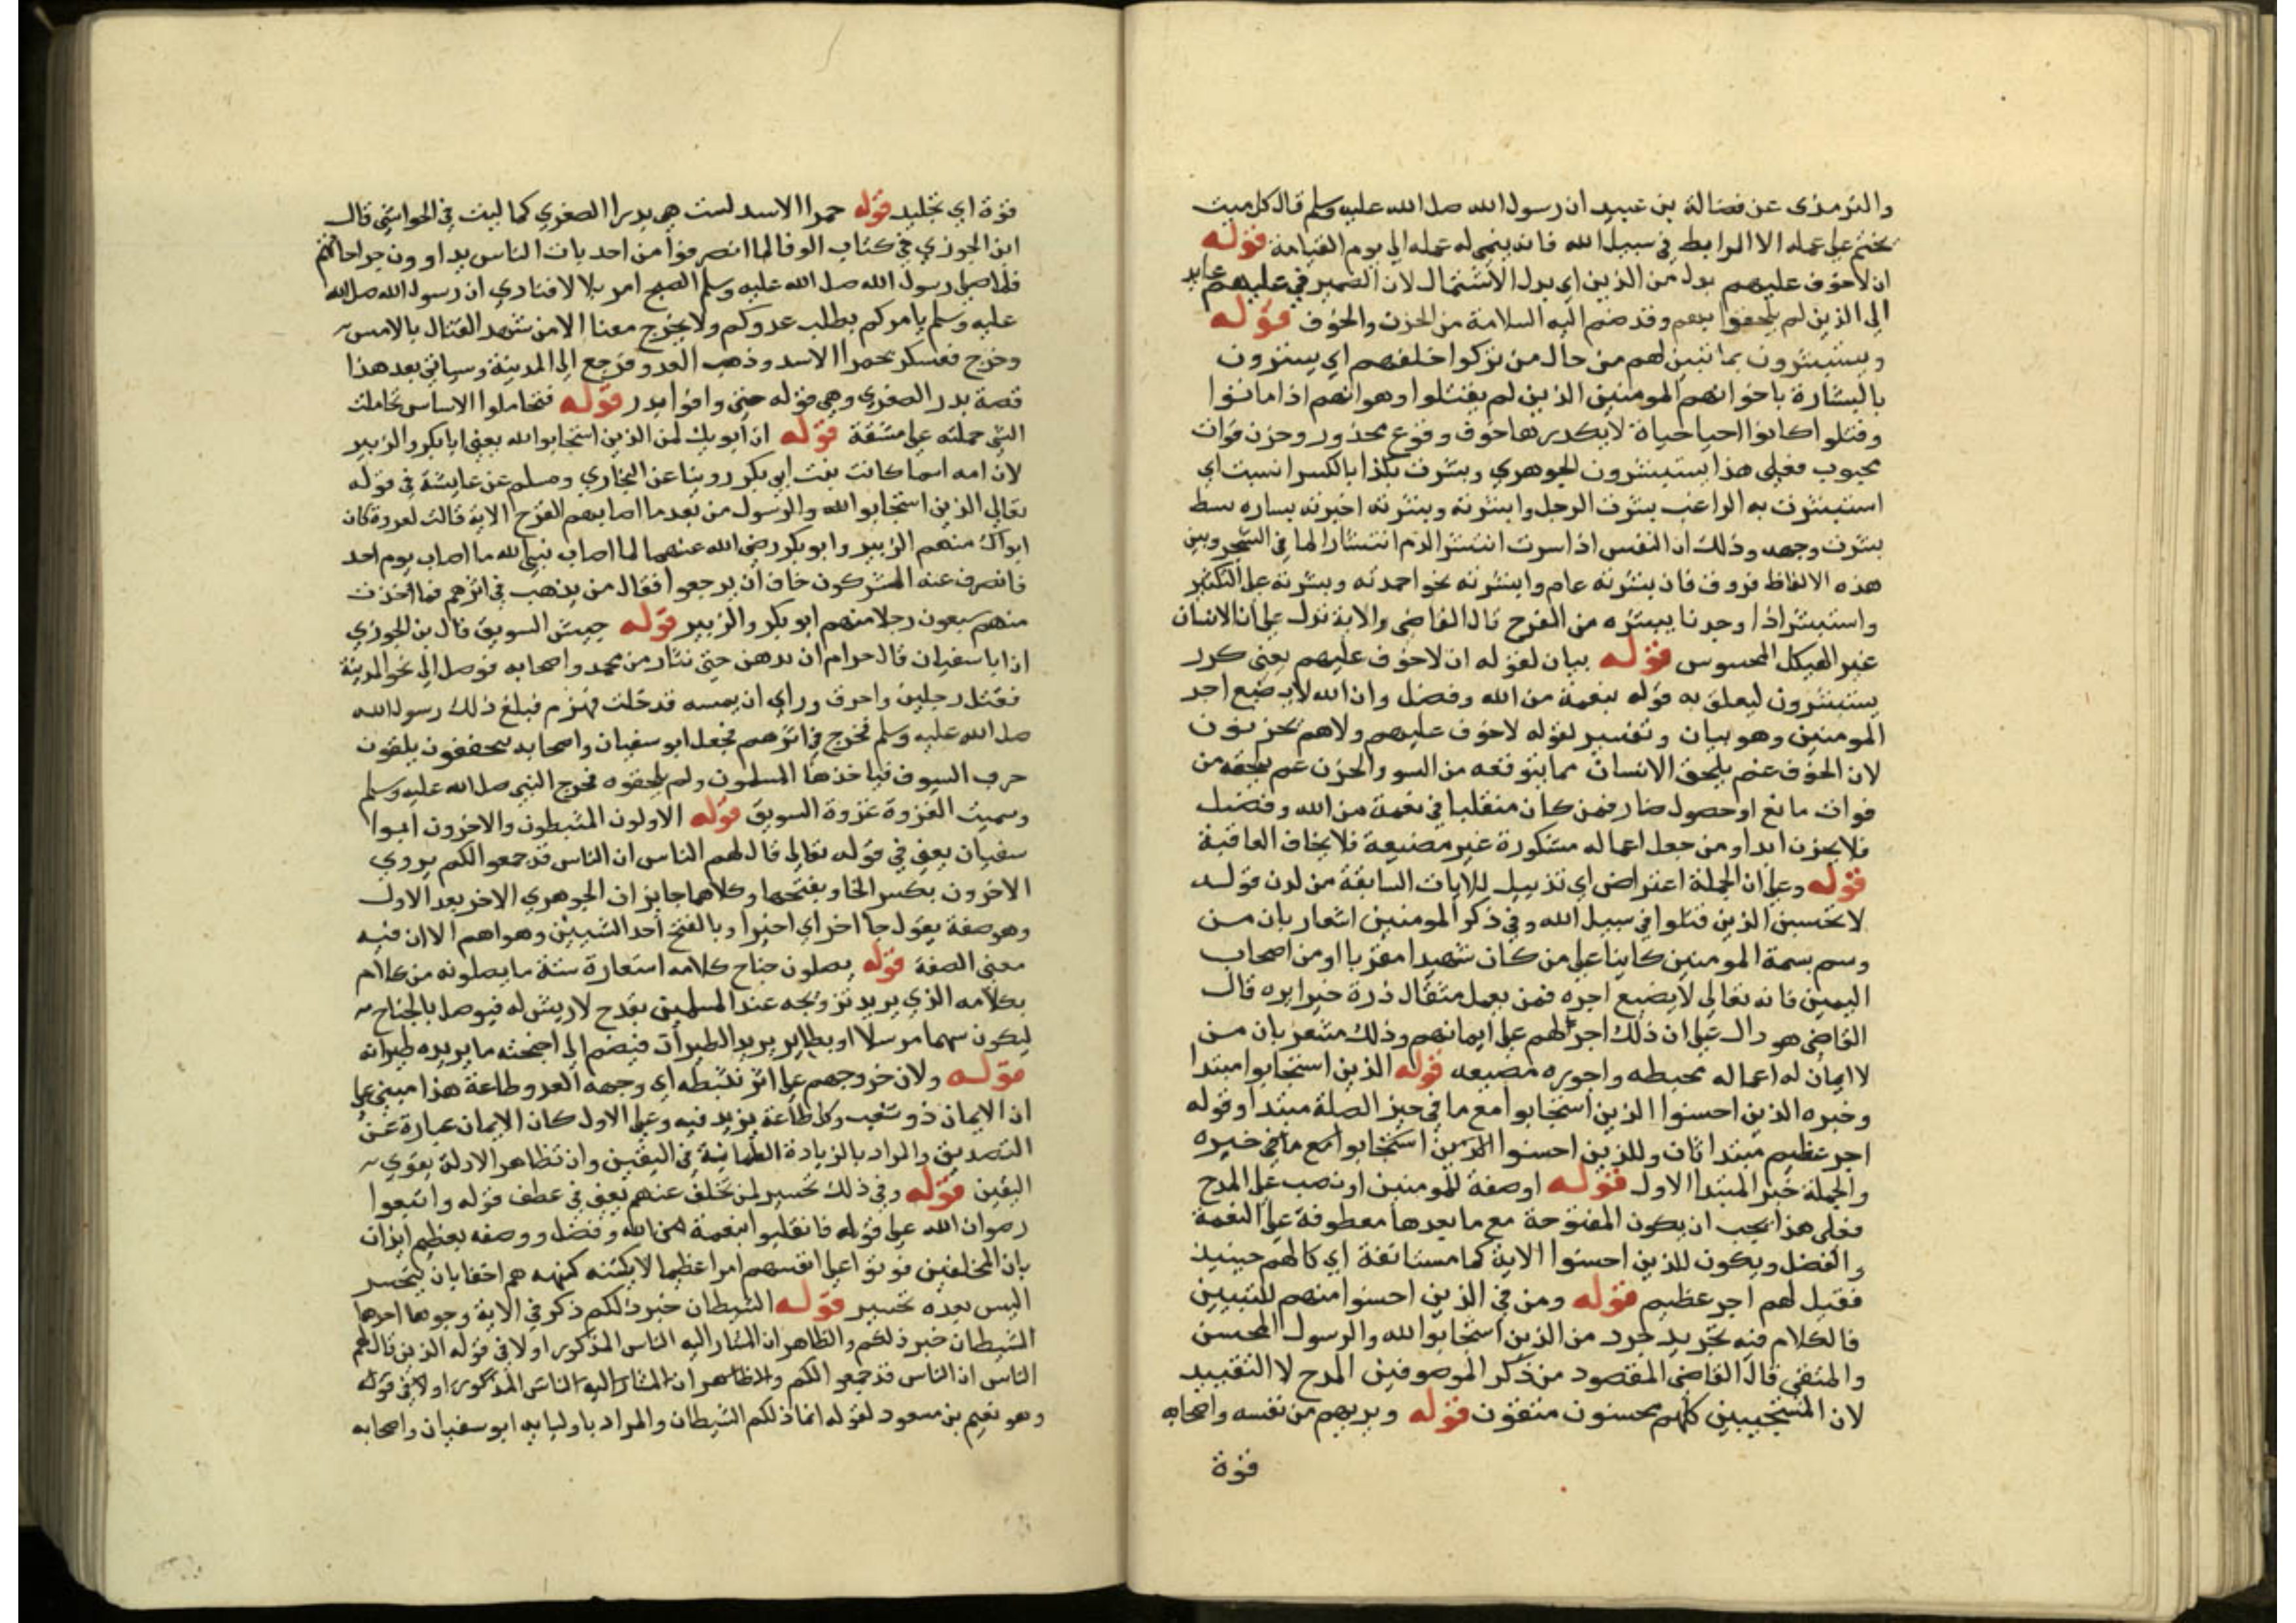 والترمذى عن فضالة بن عبيد ان رسول الله صلى الله عليه وسلم قال كل ميت
يختم على عمله الا المرابط في سبيل الله فانه ينمي له عمله الى يوم القيامة قوله
ان لا خوف عليهم بدل من الذين اي بدل الاشتمال لان الضمير في عليهم عايد
الى الذين لم يلحقوا بهم وقد ضم اليه السلامة من الحزن والخوف قوله
ويستبشرون بما تبين لهم من حال من تركوا خلفهم اي يستبشرون
بالبشارة باخوانهم المومنين الذين لم يقتلوا وهو انهم اذا ماتوا
وقتلوا كانوا احيا حياة لا يكدرها خوف وقوع محذور وحزن فوات
محبوب فعلى هذا يستبشرون الجوهري وبشرت بكذا بالكسر اي
استبشرت به الراغب بشرت الرجل وابشرته وبشرته اخبرته بساره بسط
بشرت وجهه وذلك ان النفس اذا سرت انتشر الدم انتشار الما في الشجر وبين
هذه الالفاظ فروق فان بشرته عام وابشرته نحو احمدته وبشرته على التكثير
واستبشر اذا وجد ما يبشره من الفرح قال القاضي والاية تدل على ان الانسان
غير الهيكل المحسوس قوله بيان لقوله ان لا خوف عليهم يعنى كرر
يستبشرون ليعلق به قوله بنعمة من الله وفضل وان الله لا يضيع اجر
المومنين وهو بيان وتفسير لقوله لا خوف عليهم ولا هم يحزنون
لان الخوف غم يلحق الانسان مما يتوقعه من السو والحزن غم يلحقه من
فوات مانع او حصول ضار فمن كان متقلبا في نعمة من الله وفضل
فلا يحزن ابدا ومن جعل اعماله مشكورة غير مضيعة فلا يخاف العاقبة
قوله وعلى ان الجملة اعتراض اي تذييل للايات السابقة من لدن قوله
لا تحسبن الذين قتلوا في سبيل الله وفي ذكر المومنين اشعار بان من
وسم بسمة المومنين كاينا على من كان شهيدا مقربا او من اصحاب
اليمين فانه تعالى لا يضيع اجره فمن يعمل مثقال ذرة خيرا يره قال
القاضي هو دال على ان ذلك اجر لهم على ايمانهم وذلك مشعر بان من
لا ايمان له اعماله محبطه واجوره مضيعه قوله الذين استجابوا مبتدا
وخبره الذين احسنوا الذين استجابوا مع ما في حيز الصلة مبتدا وقوله
اجر عظيم مبتدا ثان وللذين احسنوا الذين استجابوا مع ما في خبره
والجملة خبر المبتدا الاول قوله او صفة للمومنين او نصب على المدح
فعلى هذا يجب ان يكون المفتوحة مع ما بعدها معطوفة على النعمة
والفضل ويكون للذين احسنوا الاية كما مستانفة اي كا لهم حينيذ
فقيل لهم اجر عظيم قوله ومن في الذين احسنوا منهم للتبيين
فالكلام فيه تجريد جرد من الذين استجابوا لله والرسول المحسن
والمتقي قال القاضي المقصود من ذكر الموصوفين المدح لا التقييد
لان المستجيبين كلهم محسنون متقون قوله ويريهم من نفسه واصحابه
قوة
قوة اي تجليد قوله حمرا الاسد ليست هي بدرا الصغري كما ليت في الحواشي قال
ابن الجوزي في كتاب الوفا لما انصرفوا من احد بات الناس يداوون جراحاتهم
فلما صلى رسول الله صلى الله عليه وسلم الصبح امر بلالا فنادي ان رسول الله صلى الله
عليه وسلم يامركم بطلب عدوكم ولا يخرج معنا الا من شهد القتال بالامس
وخرج فعسكر بحمرا الاسد وذهب العدو فرجع الى المدينة وسياتي بعد هذا
قصة بدر الصغري وهي قوله حتى وافوا بدر قوله فتحاملوا الاساس تحاملت
الشي حملته على مشقة قوله ان ابويك لمن الذين استجابوا لله يعني ابا بكر والزبير
لان امه اسما كانت بنت ابي بكر روينا عن البخاري ومسلم عن عايشة في قوله
تعالى الذين استجابوا لله والرسول من بعد ما اصابهم القرح الاية قالت لعروة كان
ابواك منهم الزبير وابو بكر رضي الله عنهما لما اصاب نبي الله ما اصاب يوم احد
فانصرف عنه المشركون خاف ان يرجعوا فقال من يذهب في اثرهم
منهم سبعون رجلا منهم ابو بكر والزبير قوله جيش السويق قال بن الجوزي
ان ابا سفيان قال حرام ان يدهن حتى نثار من محمد واصحابه فوصل الى نحو المدينة
فقتل رجلين واحرق وراي ان يمينه قد حلت فهزم فبلغ ذلك رسول الله
صلى الله عليه وسلم فخرج في اثرهم فجعل ابو سفيان واصحابه يتخففون يلقون
جرب السويق فياخذها المسلمون ولم يلحقوه فخرج النبي صلى الله عليه وسلم
وسميت الغزوة غزوة السويق قوله الاولون المثبطون والاخرون ابوا
سفيان يعني في قوله تعالى قال لهم الناس ان الناس قد جمعوا لكم يروي
الاخرون بكسر الخا وبفتحها وكلاهما جايزان الجوهري الاخر بعد الاول
وهو صفة يقول جا اخر اي اخيرا وبالفتح احد الشيين وهو اسم الا ان فيه
معنى الصفة قوله يصلون جناح كلامه استعارة شبه ما يصلونه من كلام
بكلامه الذي يريد تزويجه عند المسلمين بقدح لا ريش له فيوصل بالجناح
ليكون سهما مرسلا او بطاير يريد الطيران فيضم الى اجنحته ما يريده طيرانه
قوله ولان خروجهم على اثر تثبطه اي وجهه العدو طاعة هذا مبني على
ان الايمان ذو شعب وكل طاعة يزيد فيه وعلى الاول كان الايمان عبارة عن
التصديق والمراد بالزيادة الطمانينة في اليقين وان تظاهر الادلة يقوي
اليقين قوله وفي ذلك تحسير لمن تخلف عنهم يعني في عطف قوله واتبعوا
رضوان الله على قوله فانقلبوا بنعمة من الله وفضل ووصفه بعظيم ايذان
بان المخلفين فوتوا على انفسهم امرا عظيما لا يكتنه كنهه هم احقا بان يتحسر
اليس بعده تحسير قوله الشيطان خبر ذلكم ذكر في الاية وجوها احدها
الشيطان خبر ذلكم والظاهر ان المشار اليه الناس المذكور اولا في قوله الذين قال لهم
الناس ان الناس قد جمعوا لكم والظاهر ان المشار اليه الناس المذكور اولا في قوله
وهو نعيم بن مسعود لقوله انما ذلكم الشيطان والمراد باوليايه ابو سفيان واصحابه